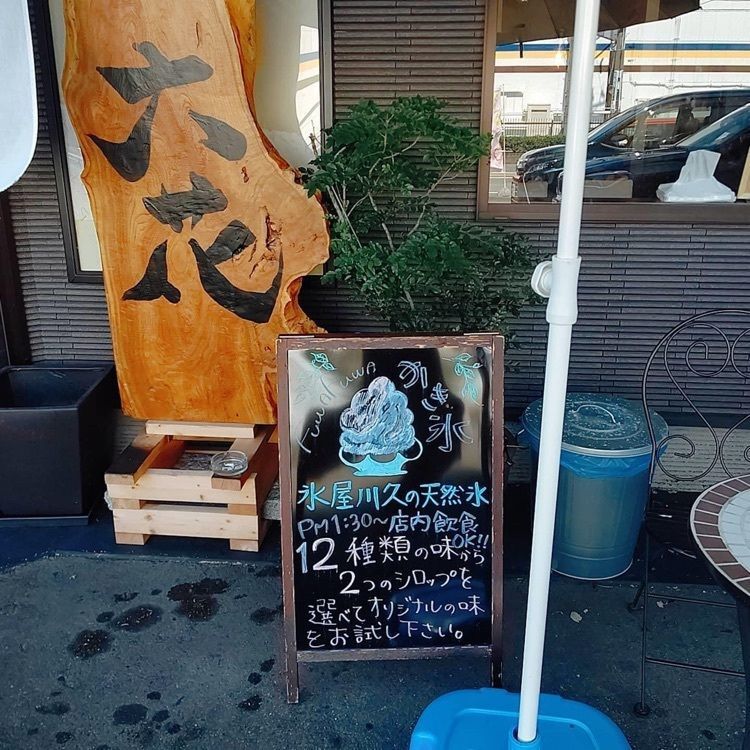 六花
FuwaFuwa
かき氷
氷屋川久の天然氷
PM1:30〜店内飲食
OK!!
12種類の味から
2つのシロップを
選べてオリジナルの味
をお試し下さい。